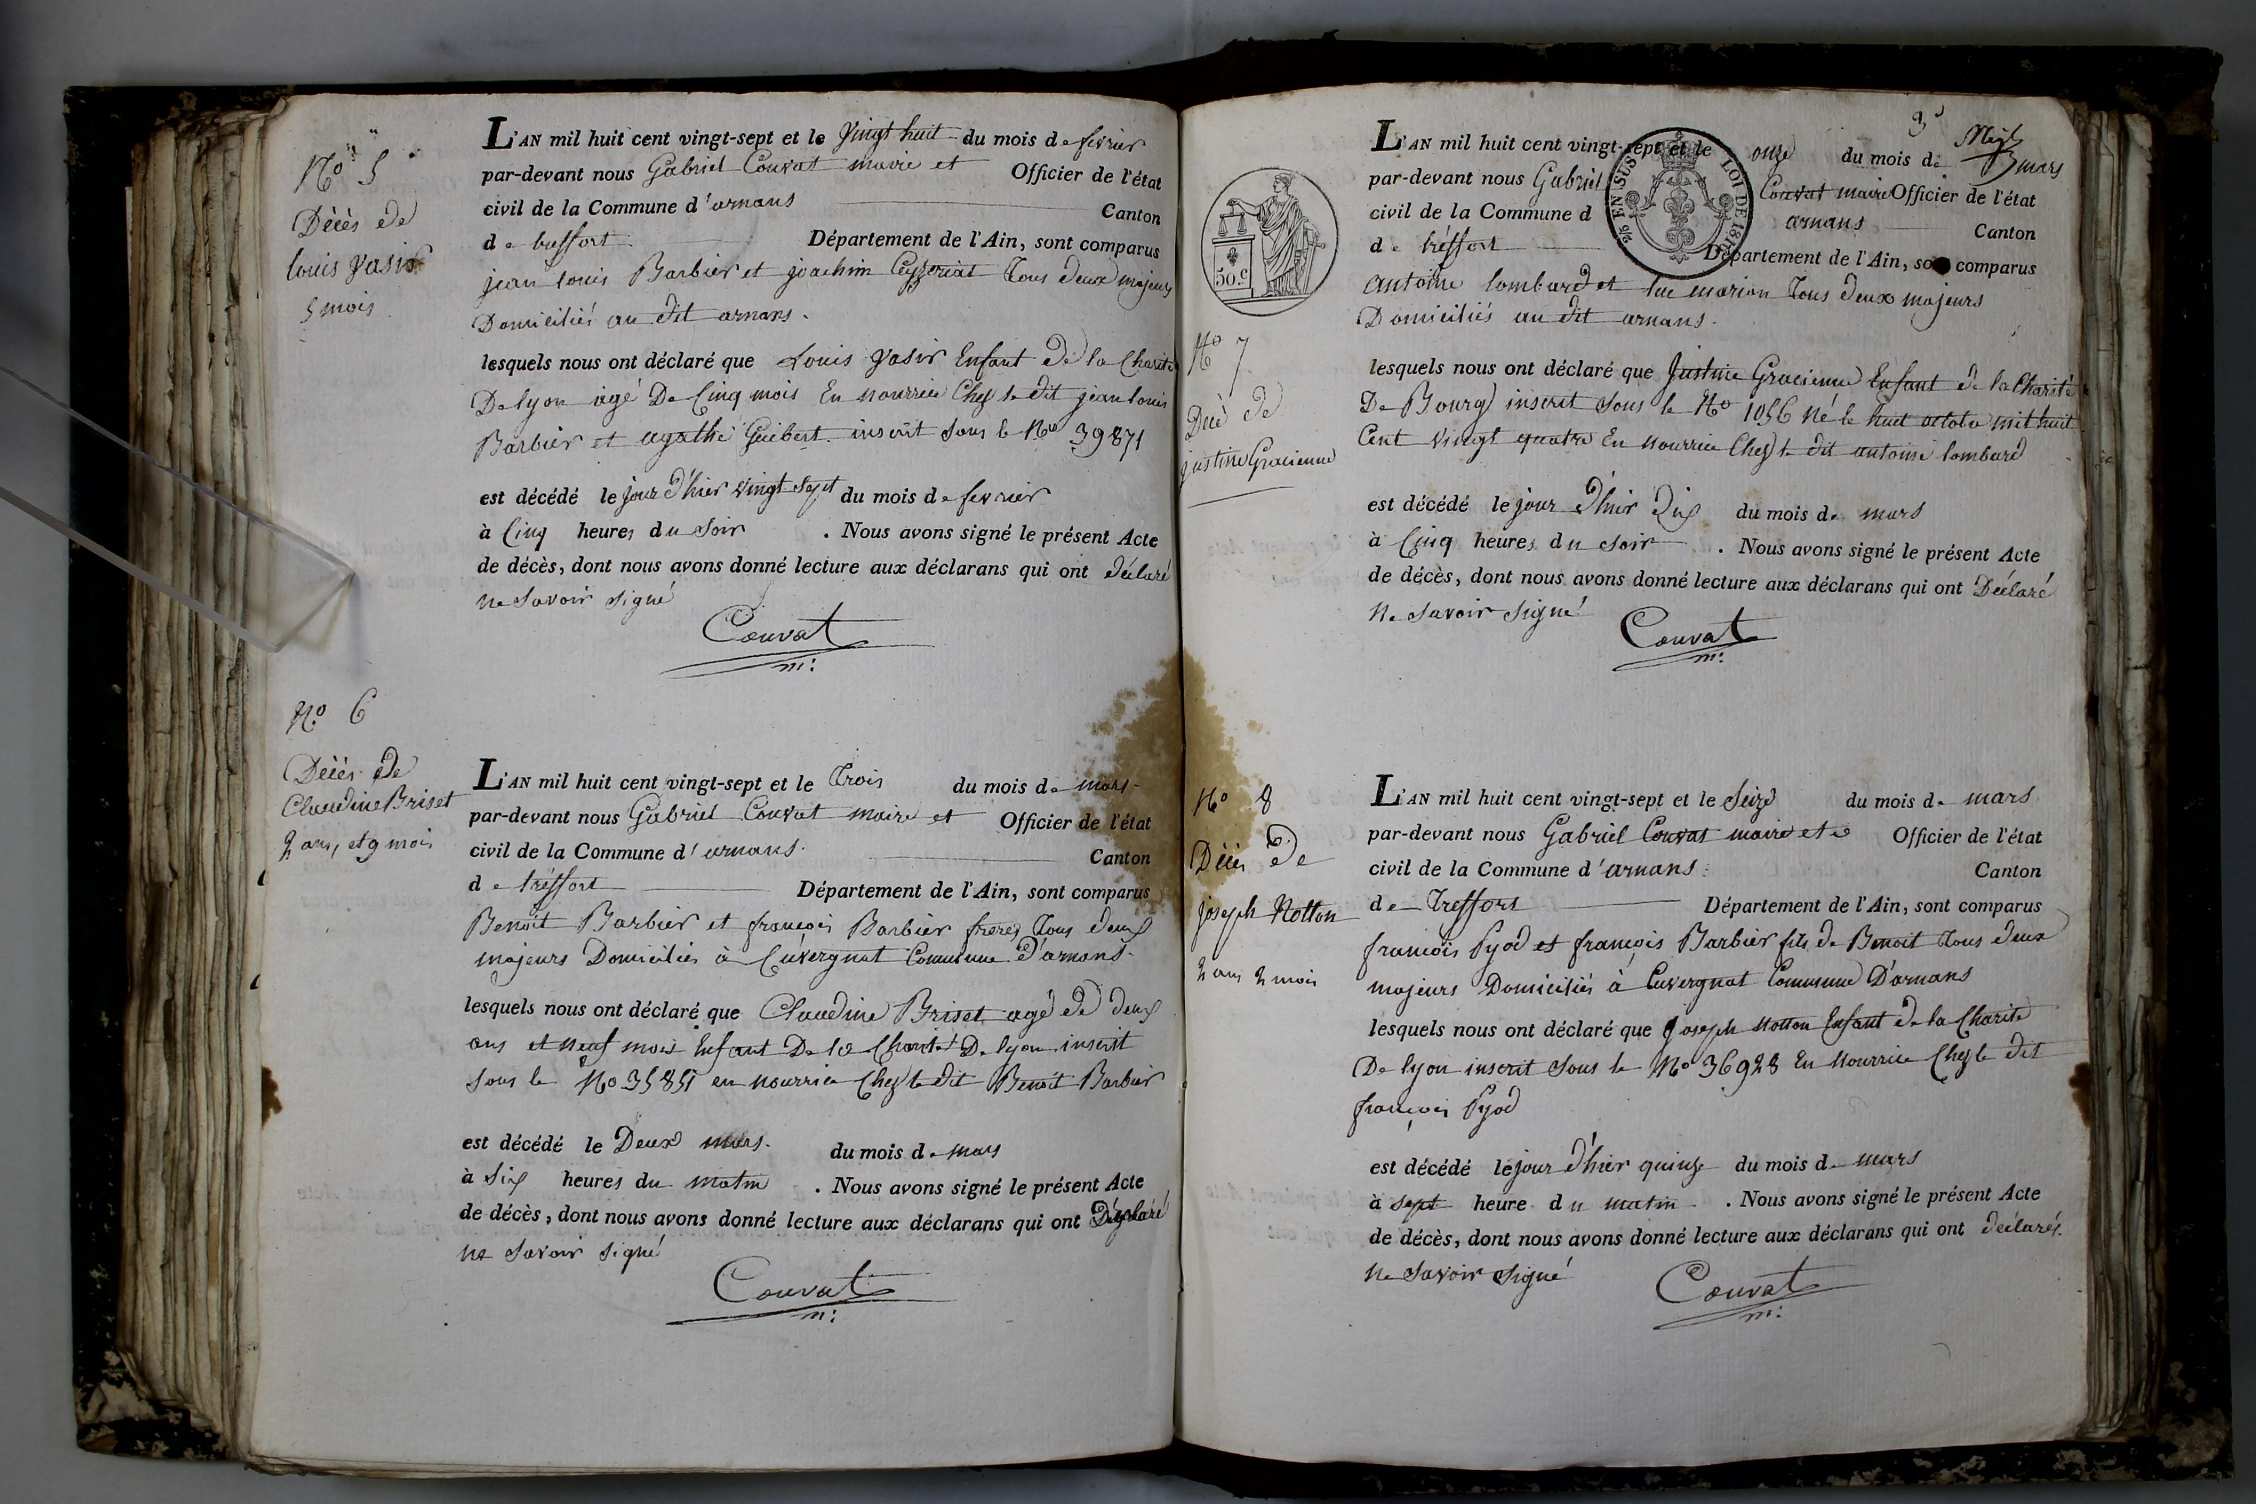 No 5
Décès de
louis Vasir
5 mois
L'AN mil huit cent vingt-sept et le vingt huit du mois de fevrier
par-devant nous Gabriel Couvat maire et Officier de l'état
civil de la Commune d'arnans Canton
de treffort Département de l'Ain, sont comparus
jean louis Barbier et joachim Ceyzeriat tous deux majeurs
Domiciliés au dit arnans.
lesquels nous ont déclaré que Louis Vasir Enfant de la Charité
De lyon agé De Cinq mois En nourrice Chez le dit jean louis
Barbier et agathe Guibert inscrit sous le No 39871
est décédé le jour d'hier vingt sept du mois de fevrier
à Cinq heures du soir . Nous avons signé le présent Acte
de décès, dont nous avons donné lecture aux déclarans qui ont déclaré
ne savoir signé
Couvat
m:
No 6
Décès de
Claudine Briset
2 ans, et 9 mois
L'AN mil huit cent vingt-sept et le trois du mois de mars
par-devant nous Gabriel Couvat maire et Officier de l'état
civil de la Commune d'arnans. Canton
de tréffort Département de l'Ain, sont comparus
Benoit Barbier et françois Barbier freres tous deux
majeurs Domiciliés à Cuvergnat Commune D'arnans.
lesquels nous ont déclaré que Claudine Briset agé de deux
ans et neuf mois Enfant De la Charité De lyon inscrit
sous le No 35851 en nourrice Chez le dit Benoit Barbier
est décédé le Deux mars. du mois de mars
à Six heures du matin . Nous avons signé le présent Acte
de décès, dont nous avons donné lecture aux déclarans qui ont Déclaré
ne savoir signé
Couvat
m:
3
L'AN mil huit cent vingt-sept et le onze du mois de mars
par-devant nous Gabriel Couvat maire Officier de l'état
civil de la Commune d arnans Canton
de tréffort Département de l'Ain, sont comparus
2/6 EN SUS LOI DE
50.c
antoine lombard et luc marion tous deux majeurs
Domiciliés au dit arnans.
No 7
Décè de
justine Gracienne
lesquels nous ont déclaré que Justine Gracienne Enfant de la Charité
De Bourg inscrit sous le No 1056 Né le huit octobre mil huit
Cent vingt quatre En nourrice Chez le dit antoine lombard
est décédé le jour d'hier Dix du mois de mars
à Cinq heures du soir . Nous avons signé le présent Acte
de décès, dont nous avons donné lecture aux déclarans qui ont Déclaré
Ne savoir signé
Couvat
m:
No 8
Décès de
joseph Notton
2 ans 2 mois
L'AN mil huit cent vingt-sept et le seize du mois de mars
par-devant nous Gabriel Couvat maire et Officier de l'état
civil de la Commune d'arnans. Canton
de Treffort Département de l'Ain, sont comparus
françois Pyod et françois Barbier fils de Benoit tous deux
majeurs Domiciliés à Cuvergnat Commune D'arnans
lesquels nous ont déclaré que Joseph Notton Enfant de la Charité
De lyon inscrit sous le No 36928 En nourrice Chez le dit
françois Pyod
est décédé le jour d'hier quinze du mois de mars
à sept heure du matin . Nous avons signé le présent Acte
de décès, dont nous avons donné lecture aux déclarans qui ont déclarés
Ne savoir signé
Couvat
m: